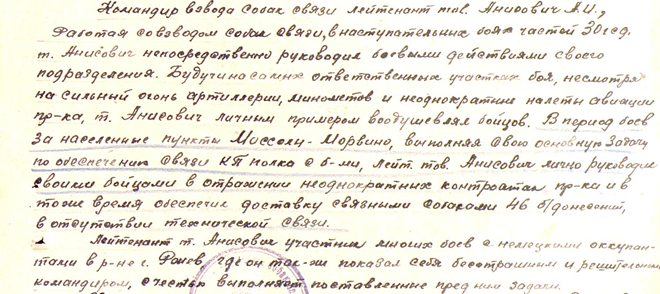 Командир взвода собак связи лейтенант тов. Анисович А.И.,
Работая со взводом собак связи, в наступательных боях частей 30 гсд,
т. Анисович непосредственно руководил боевыми действиями своего
подразделения. Будучи на самых ответственных участках боя, несмотря
на сильный огонь артиллерии, минометов и неоднократные налеты авиации
пр-ка, т. Анисович личным примером воодушевлял бойцов. В период боев
за населенные пункты Миссолу-Морвино, выполняя свою основную задачу
по обеспечению связи КП полка с б-ми, лейт. тов. Анисович лично руководил
своими бойцами в отражении неоднократных контратак пр-ка и в
то же время обеспечил доставку связными собаками 46 б/донесений,
в отсутствии технической связи.
Лейтенант т. Анисович участник многих боев с немецкими оккупан-
тами в р-не г. где он так-же показал себя бесстрашным и решительным
командиром, с честью выполняет поставленные пред ним задачи.